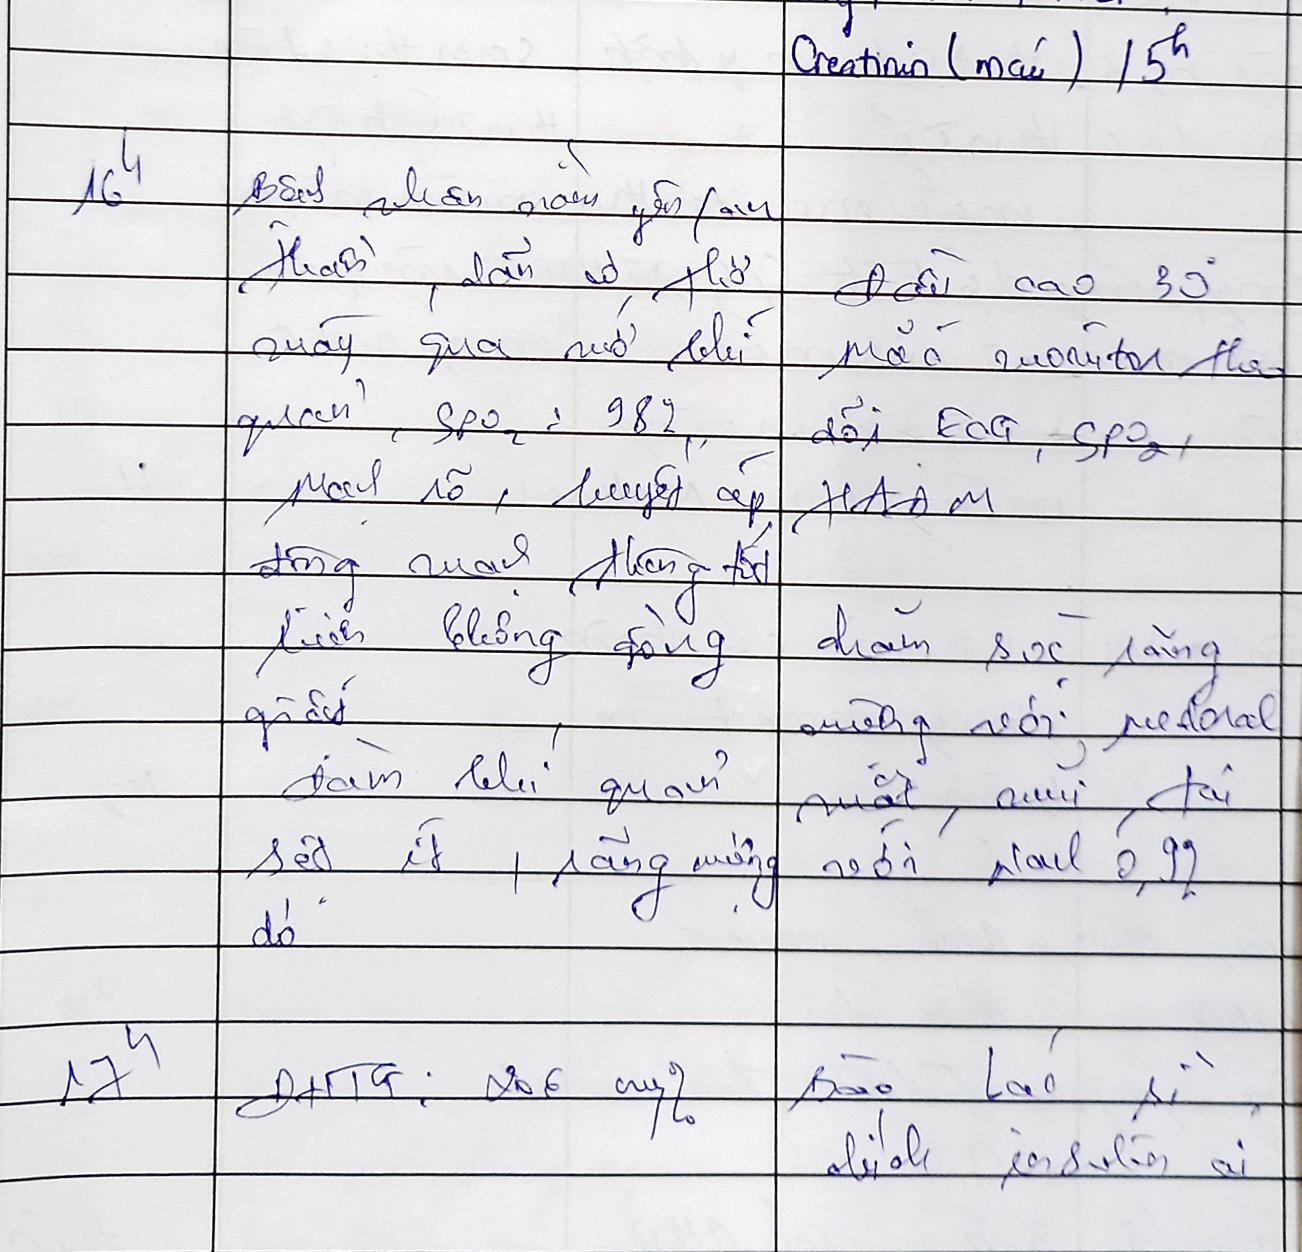 Creatinin (máu) 15h
16h
Bệnh nhân nằm yên / an
thần, dẫn lơ, thở
máy qua mở khí
quản, SPO2: 98%,
Mạch rõ, huyết áp
động mạch thông tốt
khí quản
Đàm khí quản
sệt ít, răng miệng
dơ
Đầu cao 30°
Mắc monitor theo
dõi ECG, SPO2,
HAĐM
chăm sóc răng
miệng với medoral
mắt, mũi, tai
với Nacl 0,9%
17h
ĐHTG: 206 mg%
Báo bác sĩ,
chỉnh insulin